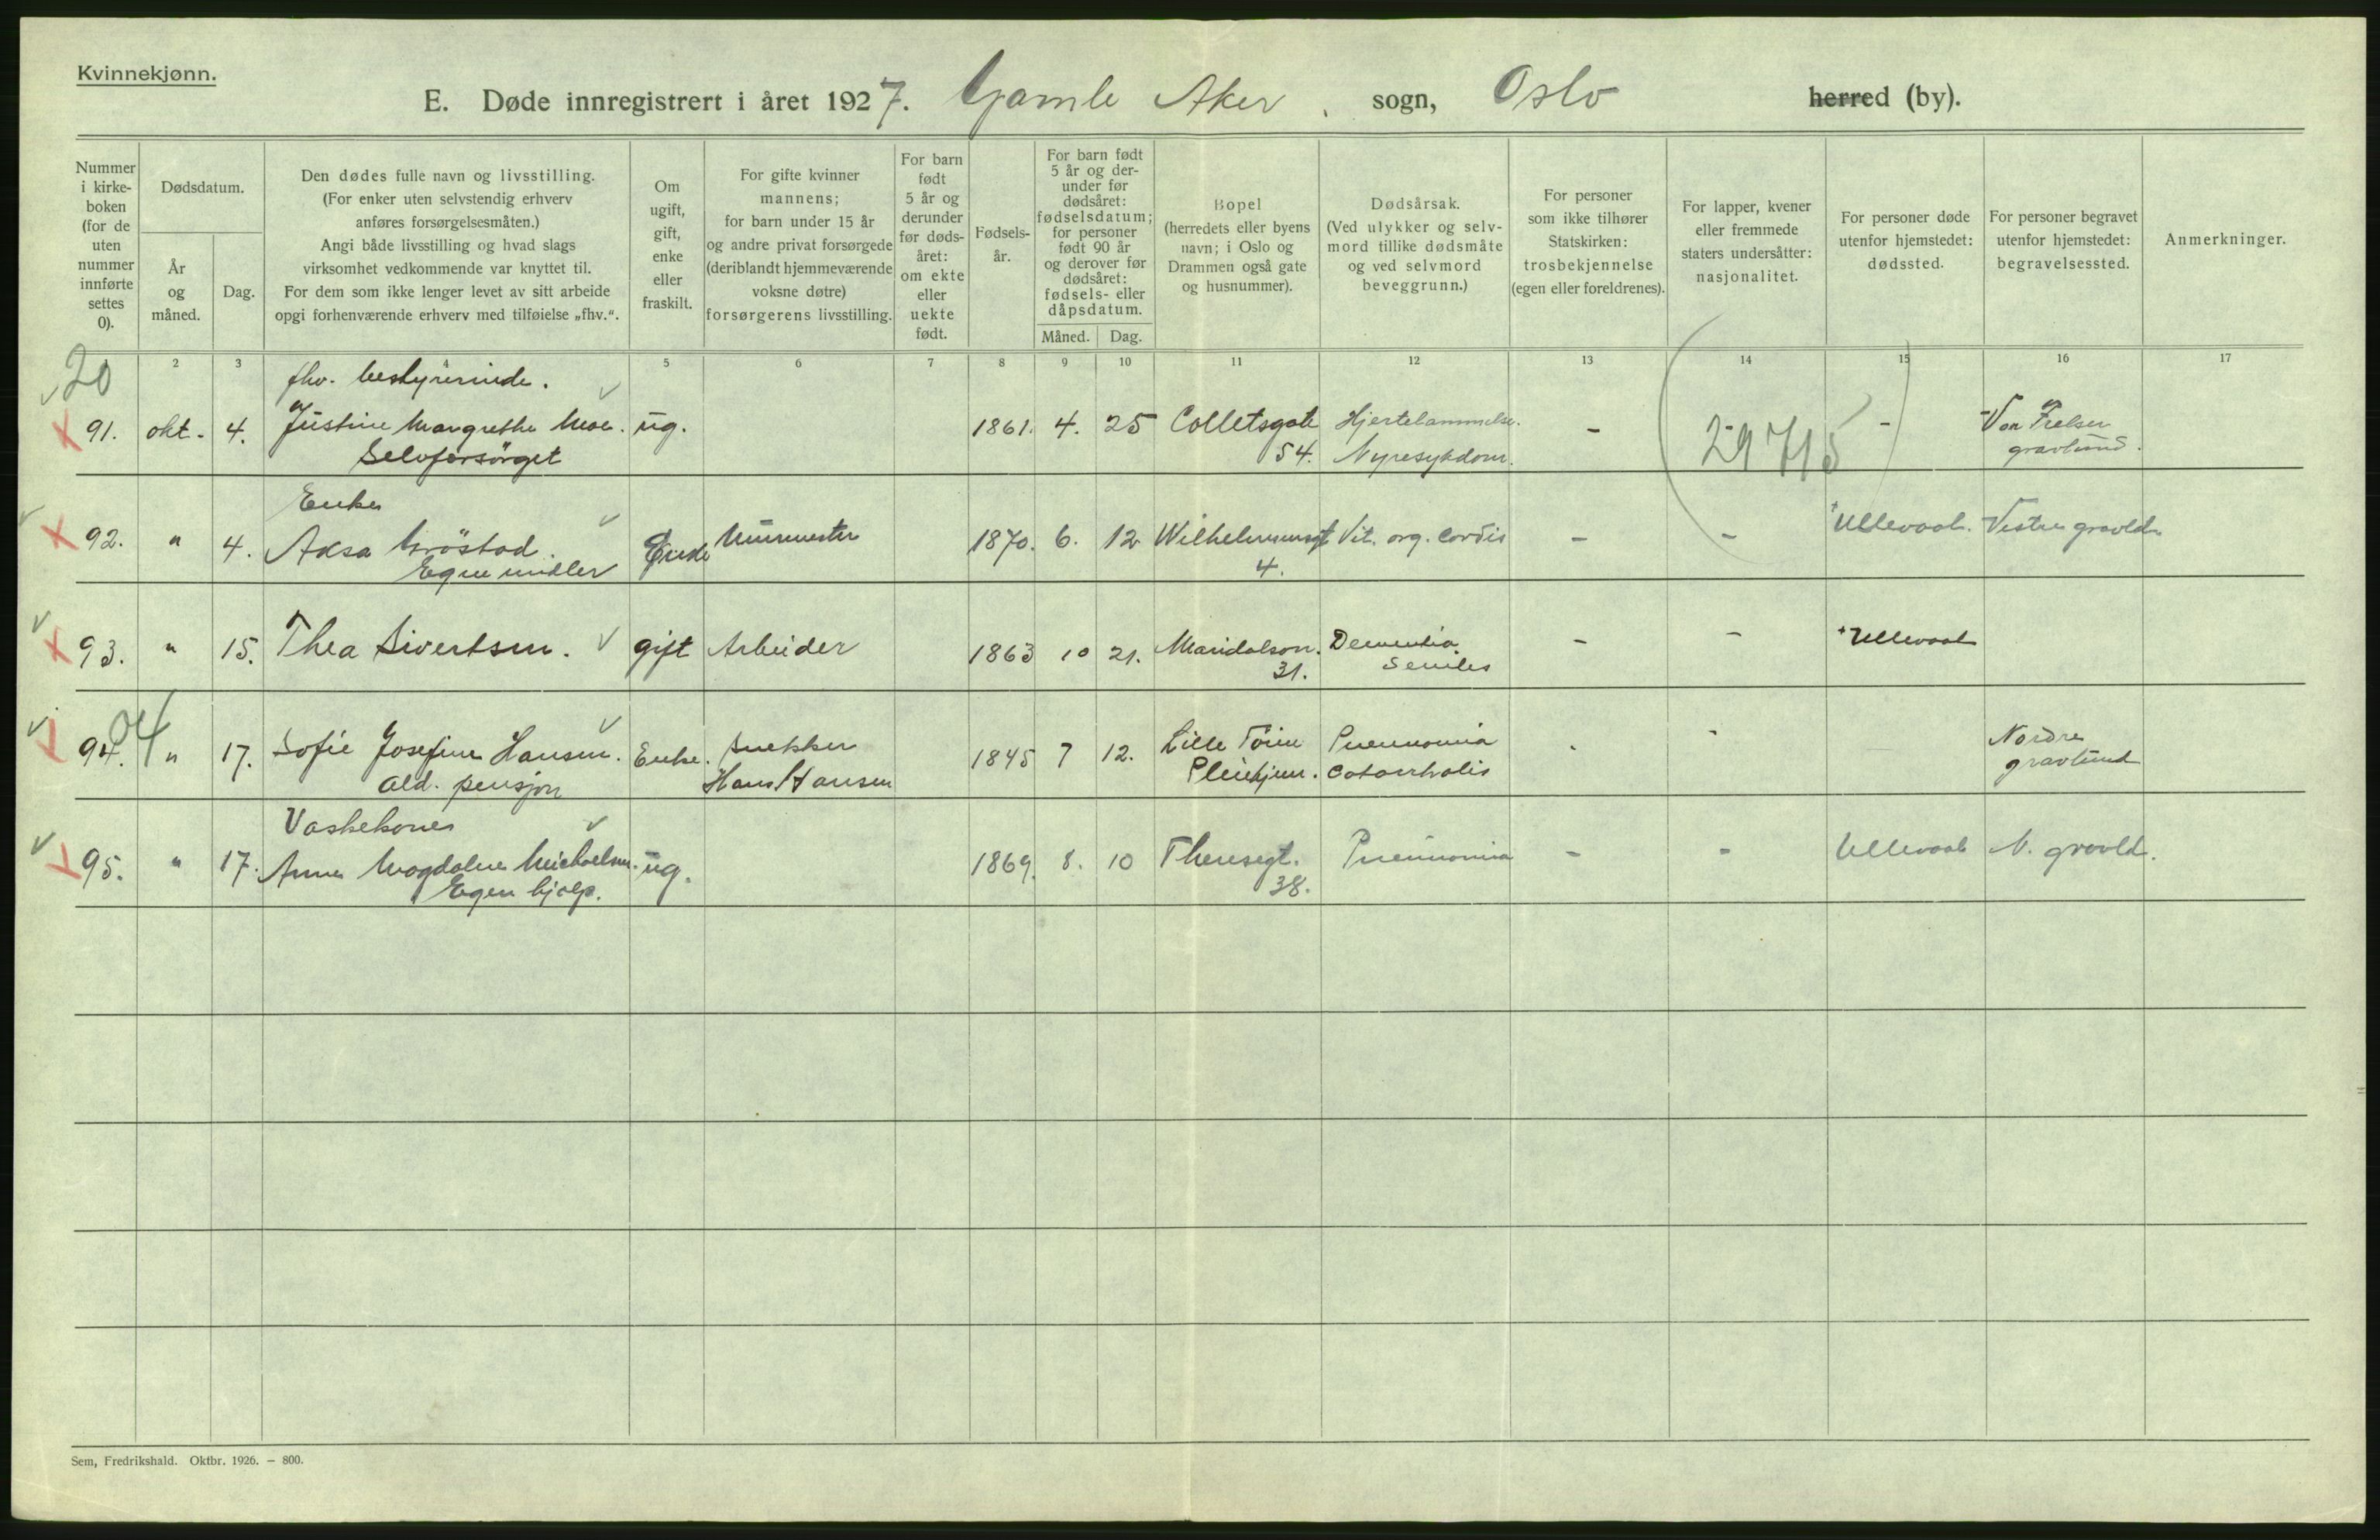 Kvinnekjønn.
E. Døde innregistrert i året 1927. Gamle Aker, sogn, Oslo herred (by).
Nummer i kirke-boken (for de uten nummer innførte settes 0).
Dødsdatum.
År og måned.
Dag.
Den dødes fulle navn og livsstilling.
(For enker uten selvstendig erhverv
anføres forsørgelsesmåten.)
Angi både livsstilling og hvad slags
virksomhet vedkommende var knyttet til.
For dem som ikke lenger levet av sitt arbeide
opgi forhenværende erhverv med tilføielse „fhv.“.
Om ugift, gift, enke eller fraskilt.
For gifte kvinner
mannens;
for barn under 15 år
og andre privat forsørgede
(deriblandt hjemmeværende
voksne døtre)
forsørgerens livsstilling.
For barn født 5 år og derunder før døds-året: om ekte eller uekte født.
Fødsels-år.
For barn født 5 år og der-under før dødsåret: fødselsdatum; for personer født 90 år og derover før dødsåret: fødsels- eller dåpsdatum.
Måned. Dag.
Bopel
(herredets eller byens
navn; i Oslo og
Drammen også gate
og husnummer).
Dødsårsak.
(Ved ulykker og selv-
mord tillike dødsmåte
og ved selvmord
beveggrunn.)
For personer
som ikke tilhører
Statskirken:
trosbekjennelse
(egen eller foreldrenes).
For lapper, kvener
eller fremmede
staters undersåtter:
nasjonalitet.
For personer døde
utenfor hjemstedet:
dødssted.
For personer begravet
utenfor hjemstedet:
begravelsessted.
Anmerkninger.
2 3 5 6 7 8 9 10 11 12 13 14 15 16 17
20
fhv. bestyrerinde.
91. okt. 4. Justine Margrethe Moe. ug. 1861. 4. 25 Colletsgate Hjertelammelse. - 29715 - Vor Frelser
Selvforsörget 54. Nyresykdom. gravlund.
Enke
92. " 4. Aksa Gröstad. Enke Murmester 1870. 6. 12 Wilhelmsgt Vit. org. cordis - - Ullevaal. Vestre gravld.
Egne midler 4.
93. " 15. Thea Sivertsen. gift Arbeider 1863 10 21. Maridalsvn. Dementia - - Ullevaal
31. Seniles
04
94. " 17. Sofie Josefine Hansen. Enke. Snekker 1845 7 12. Lille Töien Pneumonia - - Nordre
Ald. pensjon Hans Hansen Pleiehjem. catarrhalis gravlund
Vaskekone
95. " 17. Anne Magdalene Michaelsen. ug. 1869. 8. 10 Theresegt. Pneumonia - - Ullevaal N. gravld.
Egen hjelp. 38.
Sem, Fredrikshald. Oktbr. 1926. — 800.